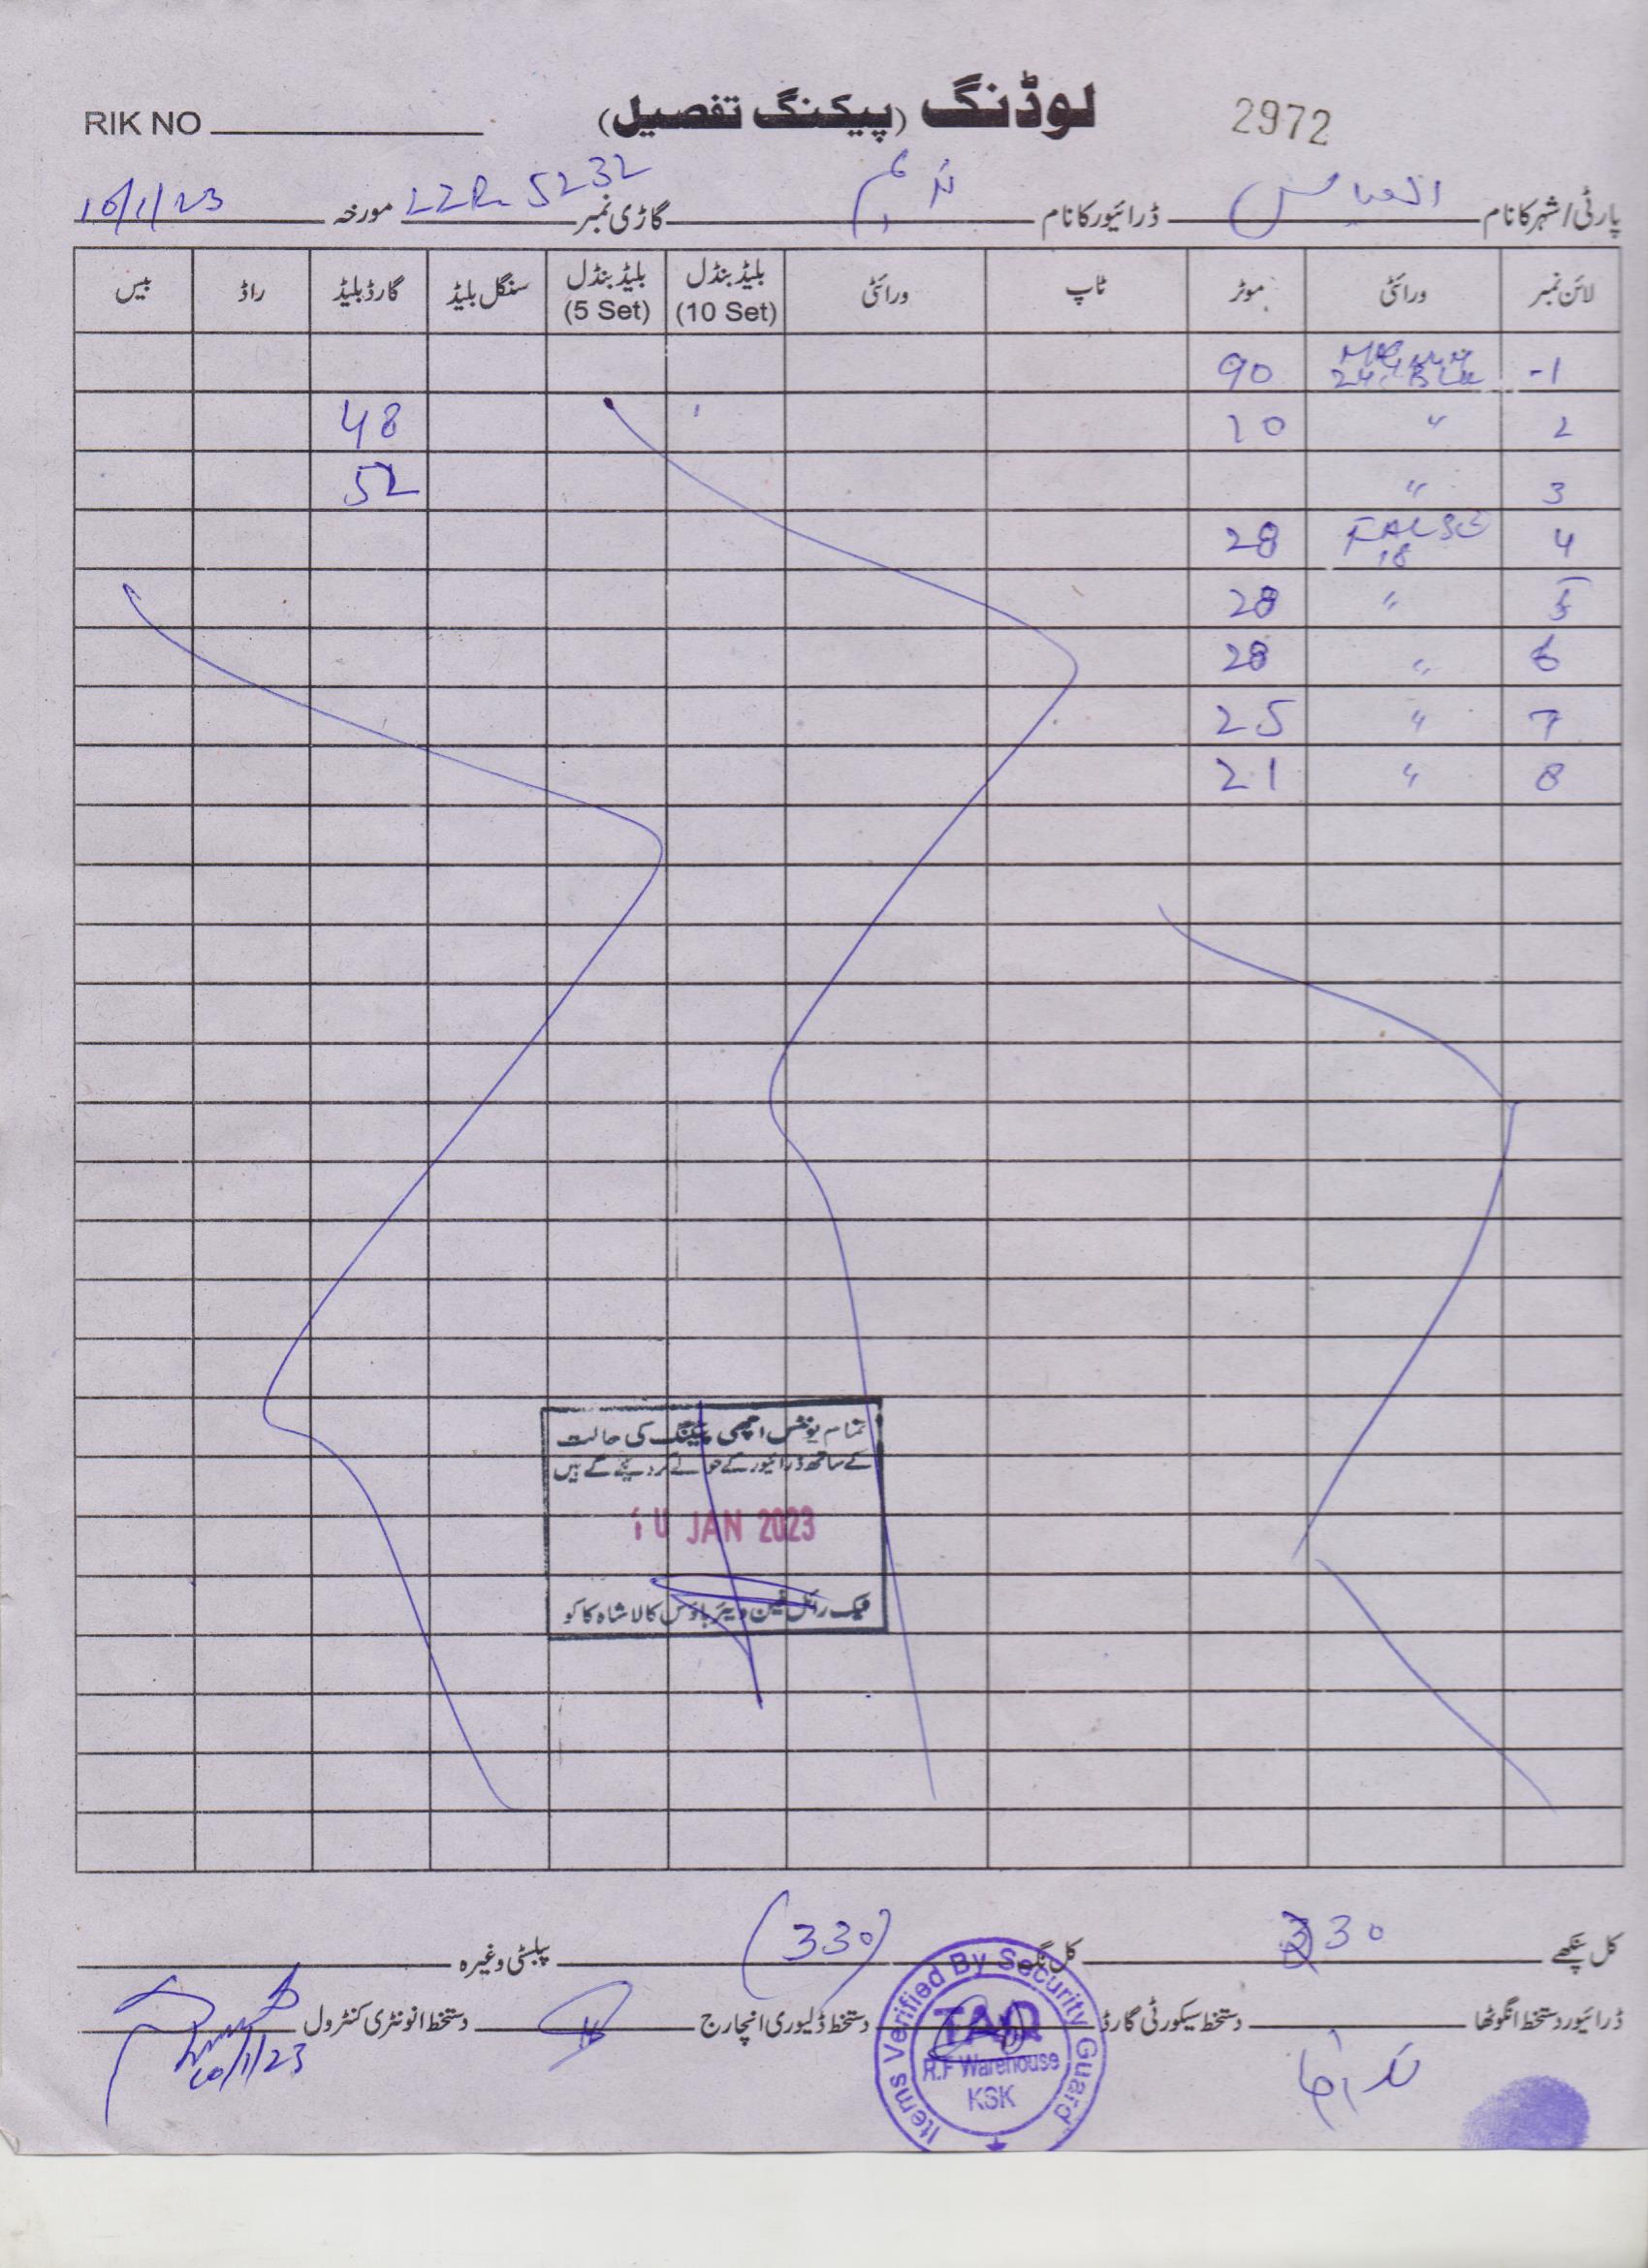 RIK NO لوڈنگ (پیکنگ تفصیل) 2972
پارٹی/شہر کا نام العباس ڈرائیور کا نام ندیم گاڑی نمبر LZR-5232 مورخہ 10/1/23
لائن نمبر ورائٹی موٹر ٹاپ ورائٹی بلیڈ بنڈل (10 Set) بلیڈ بنڈل (5 Set) سنگل بلیڈ گارڈ بلیڈ راڈ بیس
-1 90
2 " 10 48
3 " 52
4 FALSE 18 28
5 " 28
6 " 28
7 " 25
8 " 21
تمام یونٹس اچھی پیکنگ کی حالت
کے ساتھ ڈرائیور کے حوالے کر دیئے گئے ہیں
10 JAN 2023
فیک رائل فین ویئر ہاؤس کالا شاہ کاکو
کل پنکھے 330 کل نگ (330) پبلسٹی وغیرہ
ڈرائیور دستخط انگوٹھا دستخط سیکورٹی گارڈ دستخط ڈلیوری انچارج دستخط انونٹری کنٹرول
10/1/23
Items Verified By Security Guard
R.F Warehouse
KSK